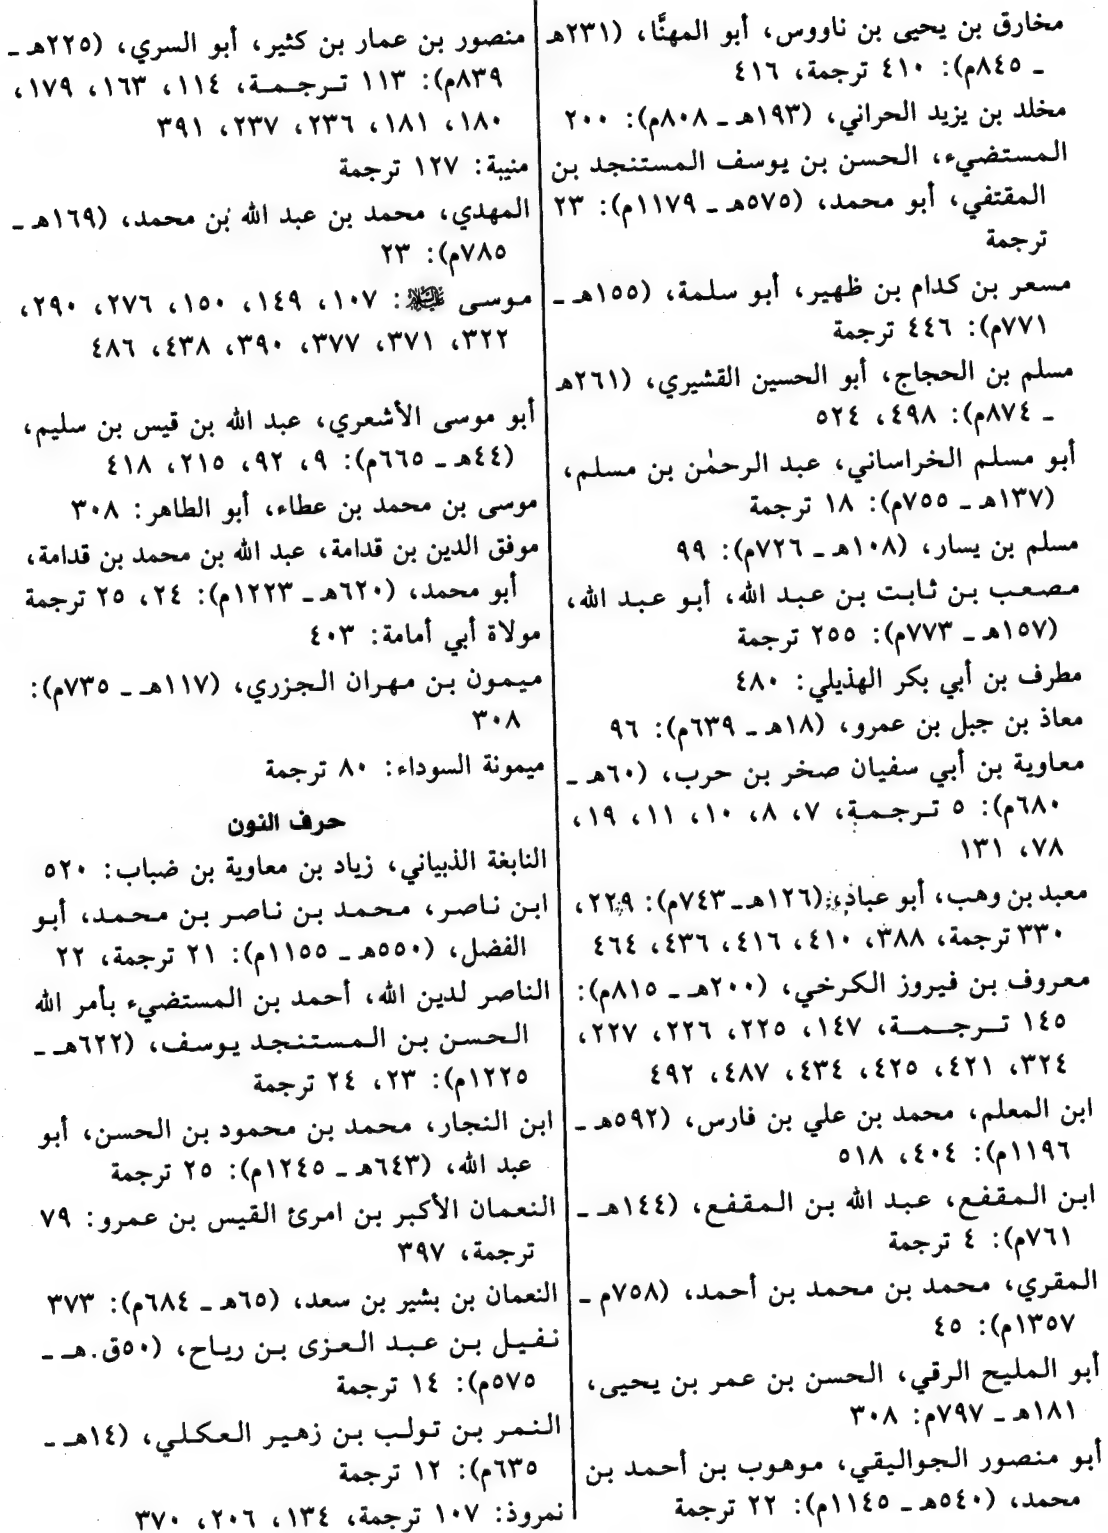 مخارق بن يحيى بن ناووس، أبو المهنَّا، (٢٣١هـ
ـ ٨٤٥م): ٤١٠ ترجمة، ٤١٦
مخلد بن يزيد الحراني، (١٩٣هـ ـ ٨٠٨م): ٢٠٠
المستضيء، الحسن بن يوسف المستنجد بن
المقتفي، أبو محمد، (٥٧٥هـ ـ ١١٧٩م): ٢٣
ترجمة
مسعر بن كدام بن ظهير، أبو سلمة، (١٥٥هـ ـ
٧٧١م): ٤٤٦ ترجمة
مسلم بن الحجاج، أبو الحسين القشيري، (٢٦١هـ
ـ ٨٧٤م): ٤٩٨، ٥٢٤
أبو مسلم الخراساني، عبد الرحمٰن بن مسلم،
(١٣٧هـ ـ ٧٥٥م): ١٨ ترجمة
مسلم بن يسار، (١٠٨هـ ـ ٧٢٦م): ٩٩
مصعب بن ثابت بن عبد الله، أبو عبد الله،
(١٥٧هـ ـ ٧٧٣م): ٢٥٥ ترجمة
مطرف بن أبي بكر الهذيلي: ٤٨٠
معاذ بن جبل بن عمرو، (١٨هـ ـ ٦٣٩م): ٩٦
معاوية بن أبي سفيان صخر بن حرب، (٦٠هـ ـ
٦٨٠م): ٥ ترجمة، ٧، ٨، ١٠، ١١، ١٩،
٧٨، ١٣١
معبد بن وهب، أبو عباد، (١٢٦هـ ـ ٧٤٣م): ٢٢٩،
٣٣٠ ترجمة، ٣٨٨، ٤١٠، ٤١٦، ٤٣٦، ٤٦٤
معروف بن فيروز الكرخي، (٢٠٠هـ ـ ٨١٥م):
١٤٥ ترجمة، ١٤٧، ٢٢٥، ٢٢٦، ٢٢٧،
٣٢٤، ٤٢١، ٤٢٥، ٤٣٤، ٤٨٧، ٤٩٢
ابن المعلم، محمد بن علي بن فارس، (٥٩٢هـ ـ
١١٩٦م): ٤٠٤، ٥١٨
ابن المقفع، عبد الله بن المقفع، (١٤٤هـ ـ
٧٦١م): ٤ ترجمة
المقري، محمد بن محمد بن أحمد، (٧٥٨م ـ
١٣٥٧م): ٤٥
أبو المليح الرقي، الحسن بن عمر بن يحيى،
١٨١هـ ـ ٧٩٧م: ٣٠٨
أبو منصور الجواليقي، موهوب بن أحمد بن
محمد، (٥٤٠هـ ـ ١١٤٥م): ٢٢ ترجمة
منصور بن عمار بن كثير، أبو السري، (٢٢٥هـ ـ
٨٣٩م): ١١٣ ترجمة، ١١٤، ١٦٣، ١٧٩،
١٨٠، ١٨١، ٢٣٦، ٢٣٧، ٣٩١
منيبة: ١٢٧ ترجمة
المهدي، محمد بن عبد الله بن محمد، (١٦٩هـ ـ
٧٨٥م): ٢٣
موسى عليه السلام: ١٠٧، ١٤٩، ١٥٠، ٢٧٦، ٢٩٠،
٣٢٢، ٣٧١، ٣٧٧، ٣٩٠، ٤٣٨، ٤٨٦
أبو موسى الأشعري، عبد الله بن قيس بن سليم،
(٤٤هـ ـ ٦٦٥م): ٩، ٩٢، ٢١٥، ٤١٨
موسى بن محمد بن عطاء، أبو الطاهر: ٣٠٨
موفق الدين بن قدامة، عبد الله بن محمد بن قدامة،
أبو محمد، (٦٢٠هـ ـ ١٢٢٣م): ٢٤، ٢٥ ترجمة
مولاة أبي أمامة: ٤٠٣
ميمون بن مهران الجزري، (١١٧هـ ـ ٧٣٥م):
٣٠٨
ميمونة السوداء: ٨٠ ترجمة
حرف النون
النابغة الذبياني، زياد بن معاوية بن ضباب: ٥٢٠
ابن ناصر، محمد بن ناصر بن محمد، أبو
الفضل، (٥٥٠هـ ـ ١١٥٥م): ٢١ ترجمة، ٢٢
الناصر لدين الله، أحمد بن المستضيء بأمر الله
الحسن بن المستنجد يوسف، (٦٢٢هـ ـ
١٢٢٥م): ٢٣، ٢٤ ترجمة
ابن النجار، محمد بن محمود بن الحسن، أبو
عبد الله، (٦٤٣هـ ـ ١٢٤٥م): ٢٥ ترجمة
النعمان الأكبر بن امرئ القيس بن عمرو: ٧٩
ترجمة، ٣٩٧
النعمان بن بشير بن سعد، (٦٥هـ ـ ٦٨٤م): ٣٧٣
نفيل بن عبد العزى بن رياح، (٥٠ق.هـ ـ
٥٧٥م): ١٤ ترجمة
النمر بن تولب بن زهير العكلي، (١٤هـ ـ
٦٣٥م): ١٢ ترجمة
نمروذ: ١٠٧ ترجمة، ١٣٤، ٢٠٦، ٣٧٠